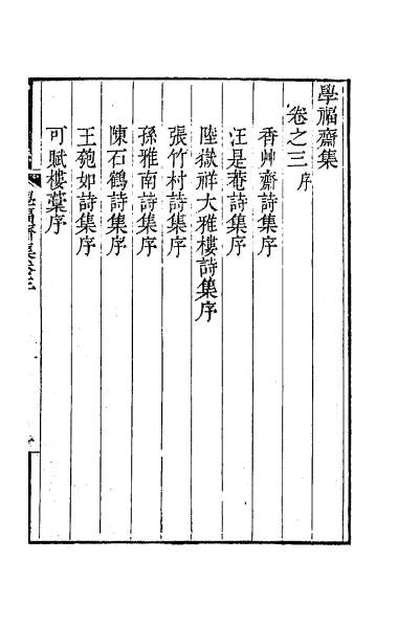 學福齋集
卷之三 序
香艸齋詩集序
汪是菴詩集序
陸嶽祥大雅樓詩集序
張竹村詩集序
孫雅南詩集序
陳石鶴詩集序
王匏如詩集序
可賦樓藁序